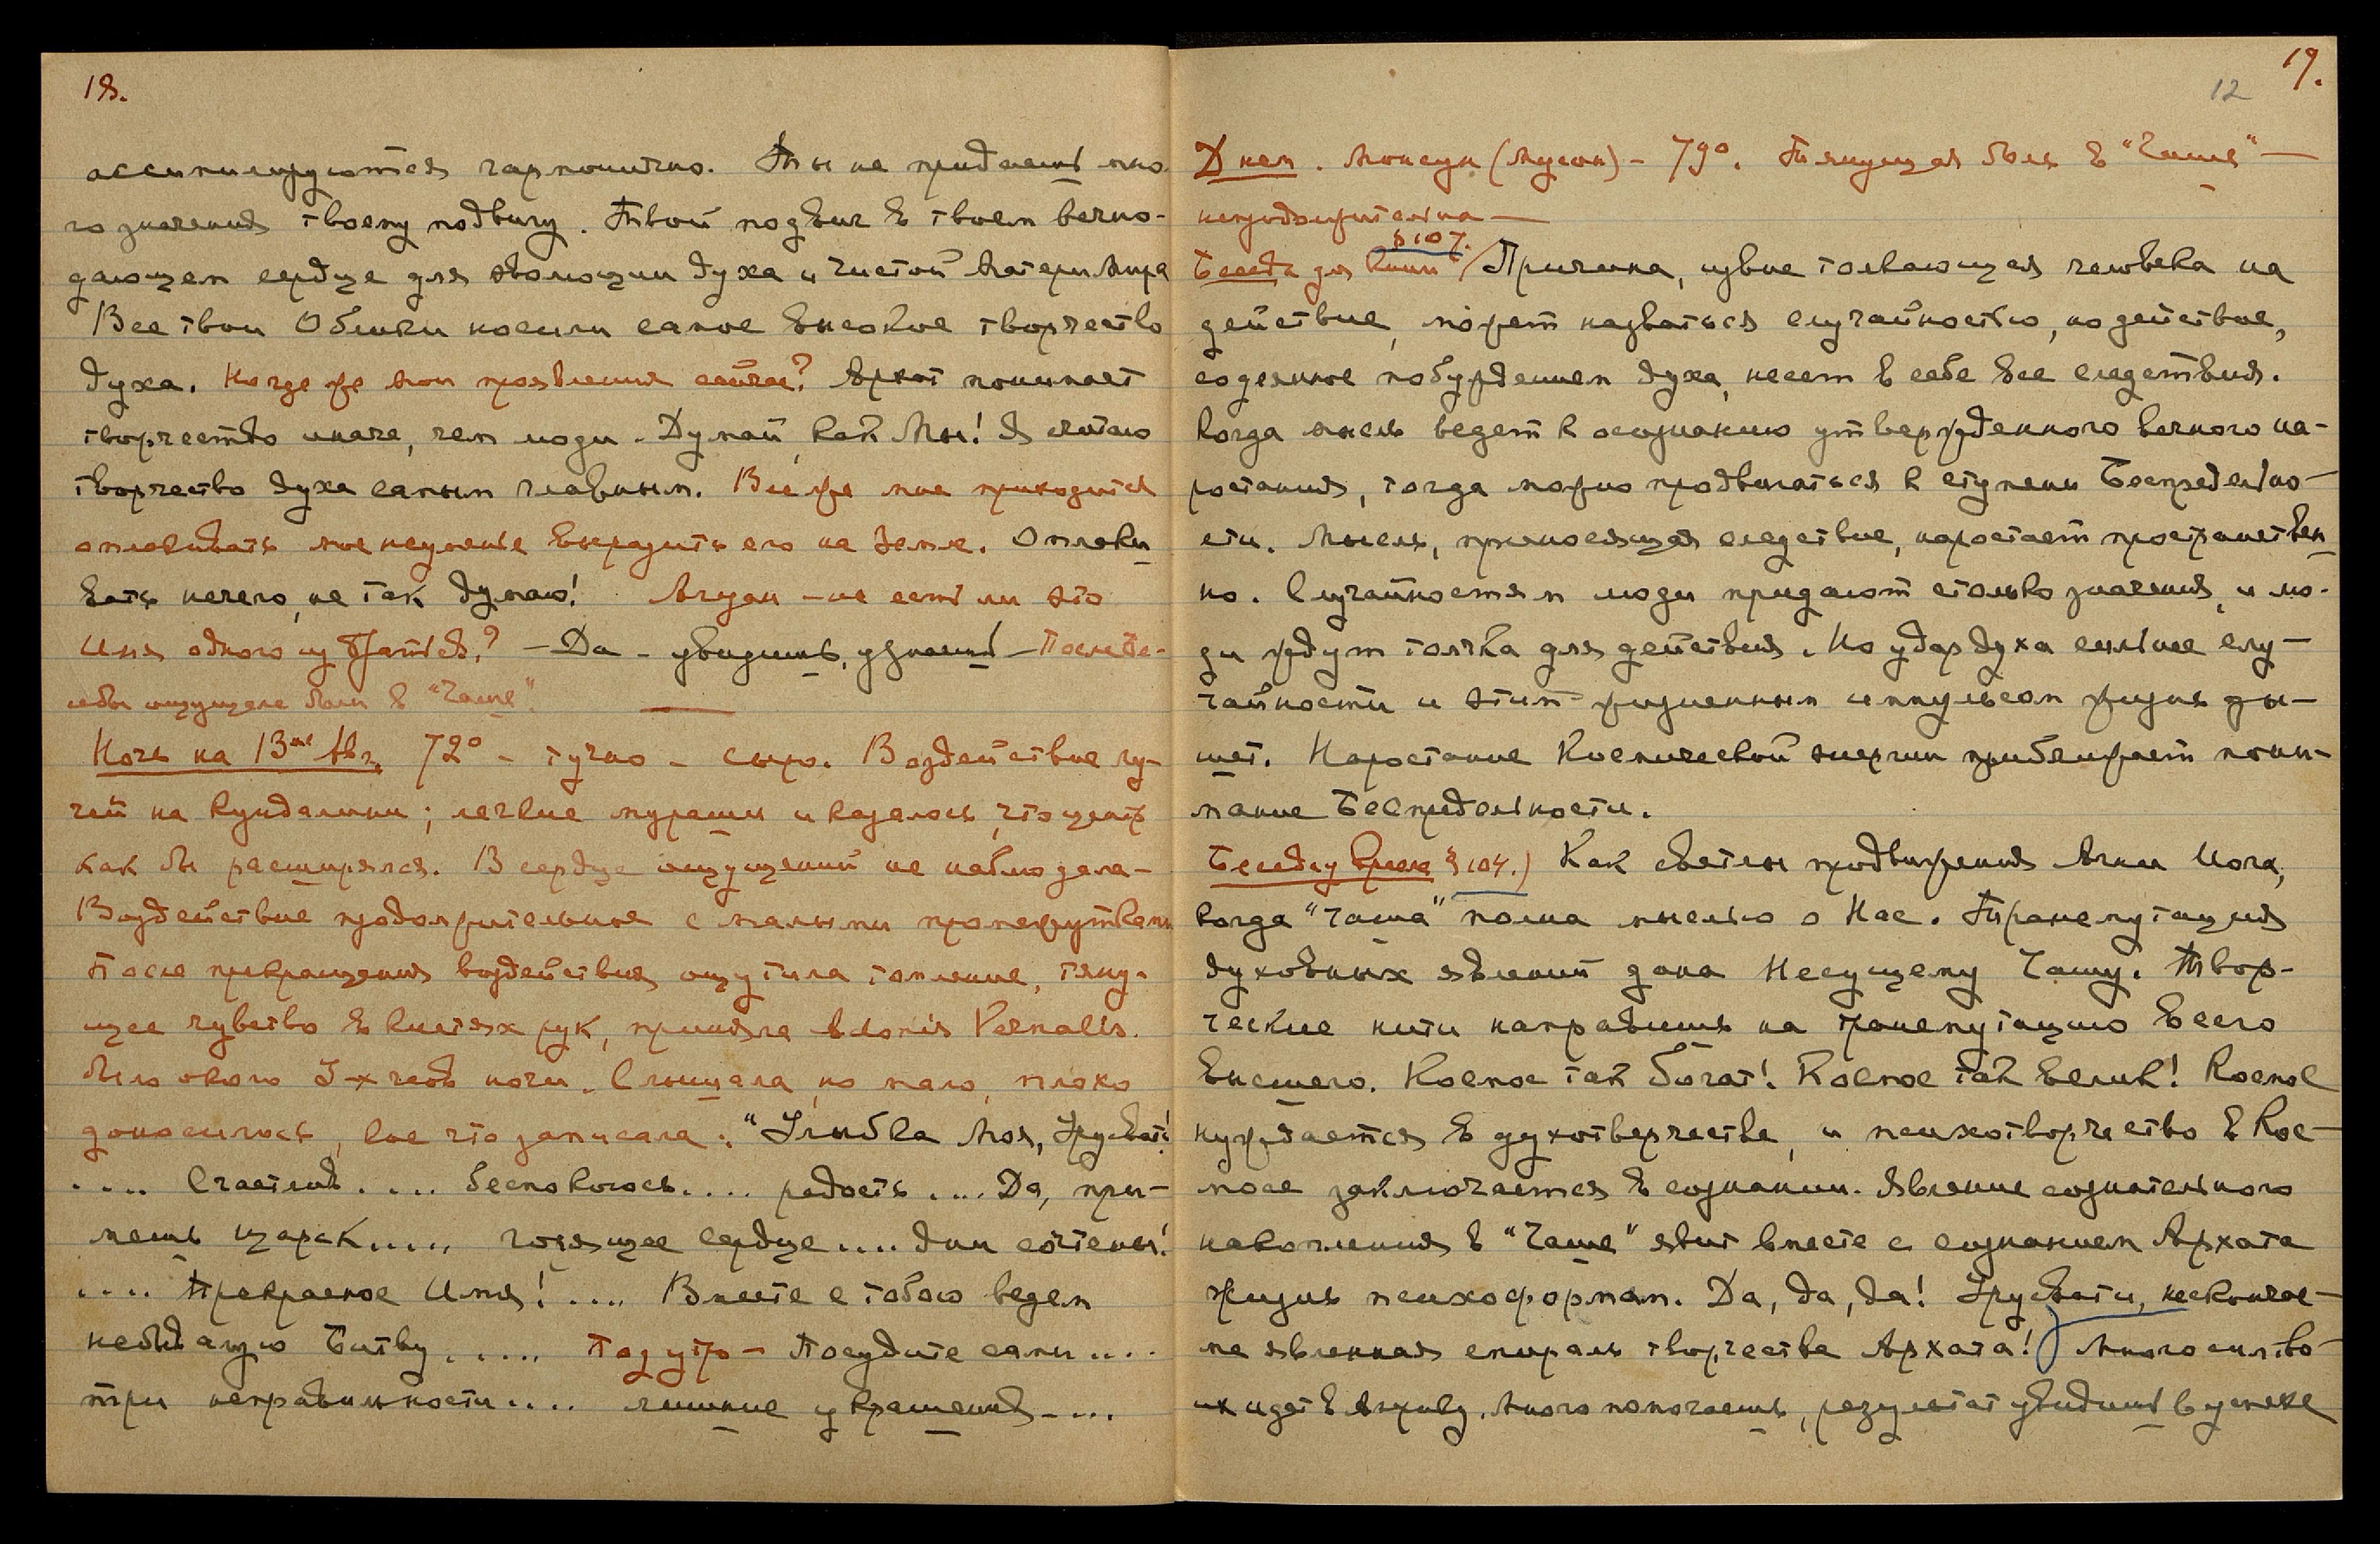 18.
ассимилируются гармонично. Ты не придаешь мно-
го значения твоему подвигу. Твой подвиг в твоем вечно-
дающем сердце для эволюции духа и чистой Матери Мира
Все твои Облики носили самое высокое творчество
духа. Но где же мои проявления сейчас? Архат понимает
творчество иначе, чем люди. Думай, как Мы! Я считаю
творчество духа самым главным. Все же мне приходится
оплакивать мое неуменье выразить его на Земле. Оплаки
вать нечего, не так думаю! Анудан – не есть ли это
Имя одного из Братьев? – Да – увидишь, узнаешь –
ощущала боли в "Чаше".
Ночь на 13ое Авг. 72° – тучно – сыро. Воздействие лу-
чей на Кундалини; легкие мураши и казалось, что центр
как бы расширялся. В сердце ощущений не наблюдала –
Воздействие продолжительное с малыми промежутками
После прекращения воздействия ощутила томление, тяну-
щее чувство в кистях рук, приняла Adonis Vernalis.
Было около 3-х часов ночи. Слышала, но мало, плохо
доносилось, кое что записала: "Улыбка Моя, Урусвати!
.... Счастлив.... беспокоюсь.... радость.... Да, при-
мешь царск..... горящее сердце.... дни сочтены!
.... Прекрасное Имя! .... Вместе с тобою ведем
небывалую Битву..... Под утро – Посудите сами....
три неправильности.... лишние украшения....
19.
12
Днем. Монсун (Мусон) – 79°. Тянущая боль в "Чаше" –
непродолжительна –
§107.
Беседа для Книги / Причина, извне толкающая человека на
действие, может назваться случайностью, но действие,
содеянное побуждением духа, несет в себе все следствия.
Когда мысль ведет к осознанию утвержденного вечного на-
ростания, тогда можно продвигаться к ступени Беспредельно-
сти. Мысль, приносящая следствие, наростает пространствен
но. Случайностям люди придают столько значения, и лю-
ди ждут толчка для действия. Но удар духа сильнее слу-
чайности и этим жизненным импульсом жизнь ды-
шет. Наростание Космической энергии приближает пони-
мание Беспредельности.
Беседа у §104.) Как светлы продвижения Агни Йога,
когда "Чаша" полна мыслью о Нас. Трансмутация
духовных явлений дана Несущему Чашу. Твор-
ческие нити направишь на трансмутацию всего
высшего. Космос так богат! Космос так велик! Космос
нуждается в духотворчестве, и психотворчество в Кос-
мосе заключается в сознании. Явление сознательного
накопления в "Чаше" явит вместе с сознанием Архата
жизнь психоформам. Да, да, да! Урусвати, нескончае-
ма явленная спираль творчества Архата! Много сил тво-
их идет в Америку. Много помогаешь, результат увидишь в успехе